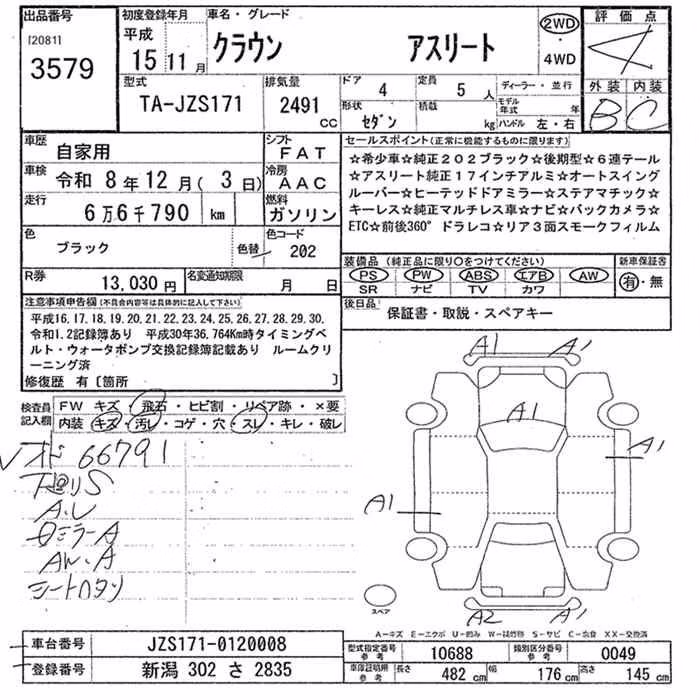 出品番号
[20811]
3579
初度登録年月
平成
15 11 月
車名・グレード
クラウン アスリート
2WD
・
4WD
評価点
4
外装 内装
B C
型式
TA-JZS171
排気量
2491
CC
ドア 4
定員 5 人
形状 セダン
積載 kg
ディーラー・並行
モデル年式 年
ハンドル 左・右
車歴 自家用
シフト FAT
車検 令和 8年 12月( 3日)
冷房 AAC
走行 6万6千790 km
燃料 ガソリン
色 ブラック 色替
色コード 202
R券 13,030円
名変通知期限 月 日
セールスポイント(正常に機能するものに限ります)
☆希少車☆純正202ブラック☆後期型☆6連テール
☆アスリート純正17インチアルミ☆オートスイング
ルーバー☆ヒーテッドドアミラー☆ステアマチック☆
キーレス☆純正マルチレス車☆ナビ☆バックカメラ☆
ETC☆前後360°ドラレコ☆リア3面スモークフィルム
装備品(純正品に限り○をつけてください)
PS PW ABS エアB AW
SR ナビ TV カワ
新車保証書
有・無
後日品 保証書・取説・スペアキー
注意事項申告欄(不具合内容等は具体的に記入して下さい)
平成16,17,18,19,20,21,22,23,24,25,26,27,28,29,30,
令和1.2記録簿あり 平成30年36,764Km時タイミングベ
ルト・ウォータポンプ交換記録簿記載あり ルームクリ
ーニング済
修復歴 有〔箇所 〕
検査員記入欄
FW キズ・飛石・ヒビ割・リペア跡・×要
内装・キズ・汚レ・コゲ・穴・スレ・キレ・破レ
オド 66791
下廻りS
A.U
ロミラーA
AW.A
シートロタン
A1 A'
A1
A1
A1
A2 A'
スペア
A-キズ E-エクボ U-凹み W-板金跡 S-サビ C-腐食 XX-交換済
車台番号 JZS171-0120008
登録番号 新潟 302 さ 2835
型式指定番号 参考 10688
類別区分番号 参考 0049
車庫証明用 参考 長さ 482 cm 幅 176 cm 高さ 145 cm